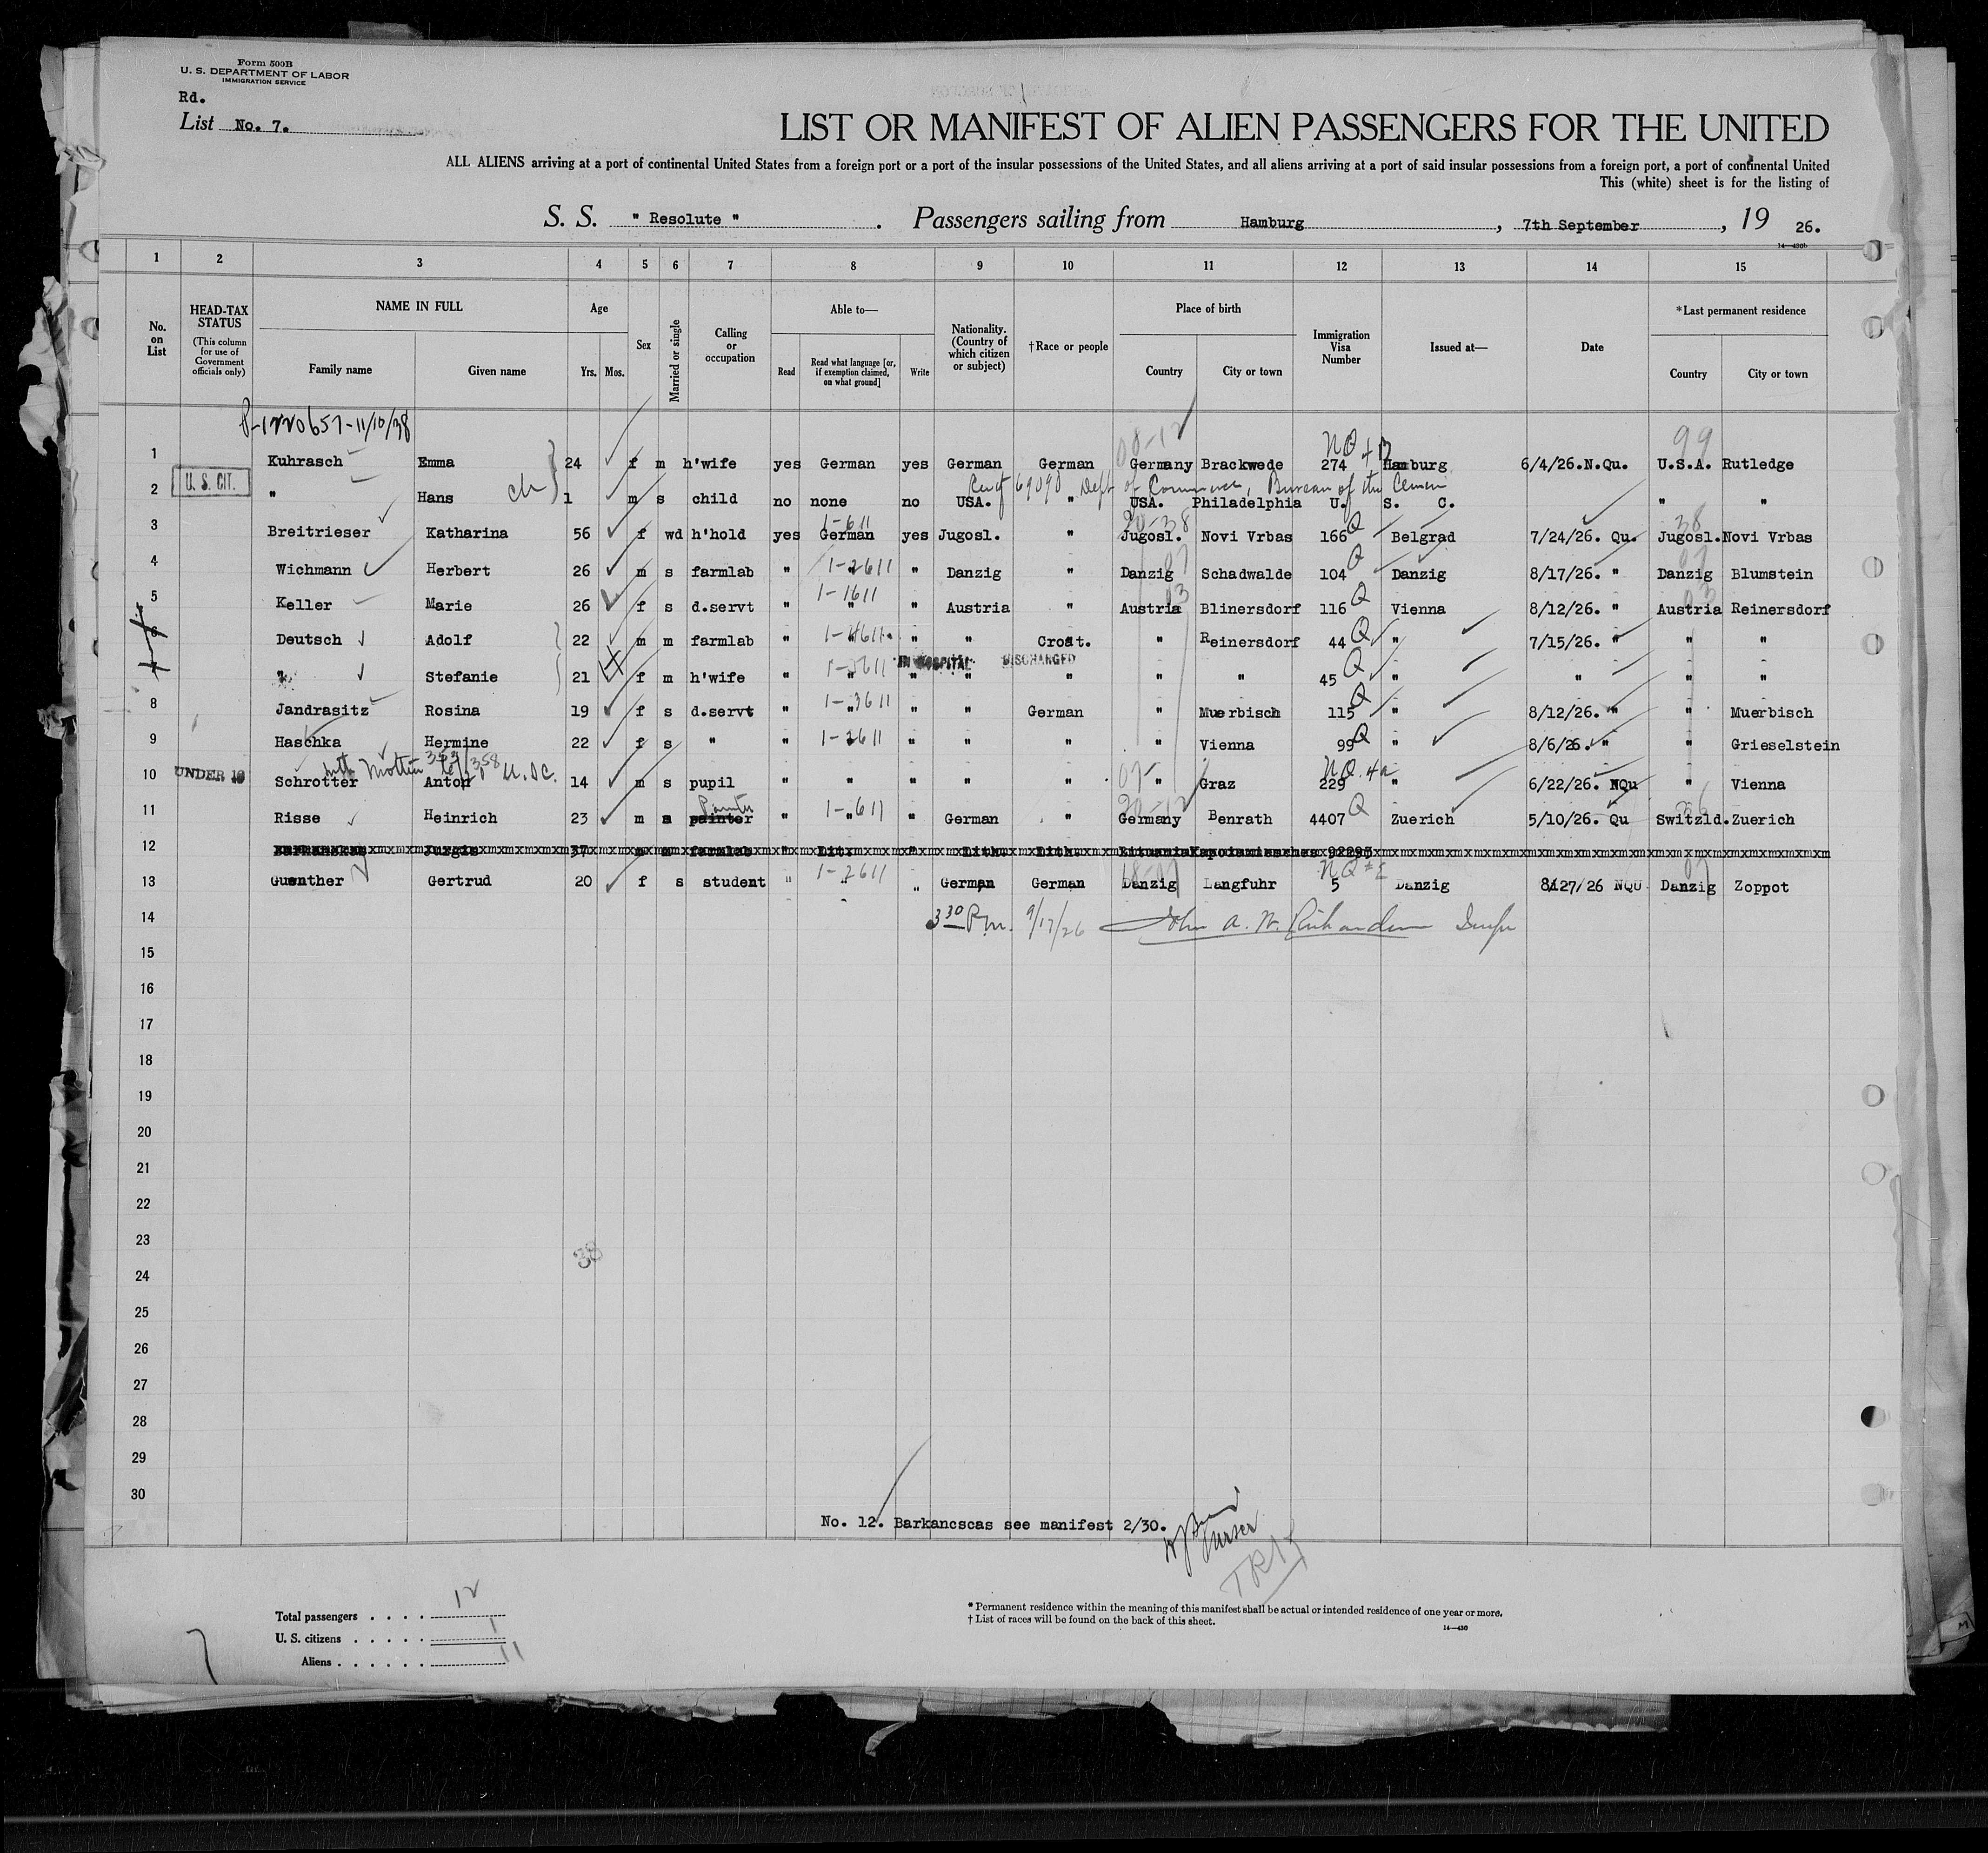 Form 500B
U. S. DEPARTMENT OF LABOR
IMMIGRATION SERVICE
Rd.
List No. 7.
LIST OR MANIFEST OF ALIEN PASSENGERS FOR THE UNITED
ALL ALIENS arriving at a port of continental United States from a foreign port or a port of the insular possessions of the United States, and all aliens arriving at a port of said insular possessions from a foreign port, a port of continental United
This (white) sheet is for the listing of
S. S. " Resolute " . Passengers sailing from Hamburg , 7th September , 19 26.
14—430b
1 2 3 4 5 6 7 8 9 10 11 12 13 14 15
No. on List
HEAD-TAX STATUS (This column for use of Government officials only)
NAME IN FULL Family name Given name
Age Yrs. Mos.
Sex
Married or single
Calling or occupation
Able to— Read Read what language [or, if exemption claimed, on what ground] Write
Nationality. (Country of which citizen or subject)
†Race or people
Place of birth Country City or town
Immigration Visa Number
Issued at—
Date
*Last permanent residence Country City or town
P-1220657-11/10/38
08-12 NQ 99
1 Kuhrasch Emma 24 f m h'wife yes German yes German German Germany Brackwede 274 Hamburg 6/4/26.N.Qu. U.S.A. Rutledge
Cert 69090 Dept of Commerce, Bureau of the Census
2 U. S. CIT. " Hans ch 1 m s child no none no USA. " USA. Philadelphia U. S. C. " "
1-611 20-38 38
3 Breitrieser Katharina 56 f wd h'hold yes German yes Jugosl. " Jugosl. Novi Vrbas 166 Q Belgrad 7/24/26. Qu. Jugosl. Novi Vrbas
4 Wichmann Herbert 26 m s farmlab " 1-2611 " Danzig " Danzig 07 Schadwalde 104 Q Danzig 8/17/26. " Danzig 07 Blumstein
5 Keller Marie 26 f s d.servt " 1-1611 " Austria " Austria 03 Blinersdorf 116 Q Vienna 8/12/26. " Austria 03 Reinersdorf
6 Deutsch Adolf 22 m m farmlab " " " Croat. " Reinersdorf 44 Q " 7/15/26. " " "
IN HOSPITAL DISCHARGED
" Stefanie 21 f m h'wife " " " " " " " 45 Q " " " "
8 Jandrasitz Rosina 19 f s d.servt " 1-3611 " " German " Muerbisch 115 Q " 8/12/26. " " Muerbisch
9 Haschka Hermine 22 f s " " 1-2611 " " " " Vienna 99 Q " 8/6/26. " " Grieselstein
Mother U.S.C. NQ.4a
10 UNDER 16 Schrotter Anton 14 m s pupil " " " " " 03 " Graz 229 " 6/22/26. NQu " Vienna
Painter 20-12
11 Risse Heinrich 23 m s painter " 1-611 " German " Germany Benrath 4407 Q Zuerich 5/10/26. Qu Switzld. Zuerich
12 Jurgis 37 m m farmlab " Lit. " Lith. Lith. 92293
1-2611 07
13 Guenther Gertrud 20 f s student " " " German German Danzig Langfuhr 5 Danzig 8/27/26 NQU Danzig Zoppot
14 3 30 P.m. 9/17/26 John A. W. Richardson Inspr
15
16
17
18
19
20
21
22
23
38
24
25
26
27
28
29
30
No. 12. Barkancscas see manifest 2/30.
Purser
Total passengers . . . . 12
U. S. citizens . . . . . 1
Aliens . . . . . . 11
* Permanent residence within the meaning of this manifest shall be actual or intended residence of one year or more.
† List of races will be found on the back of this sheet.
14—430